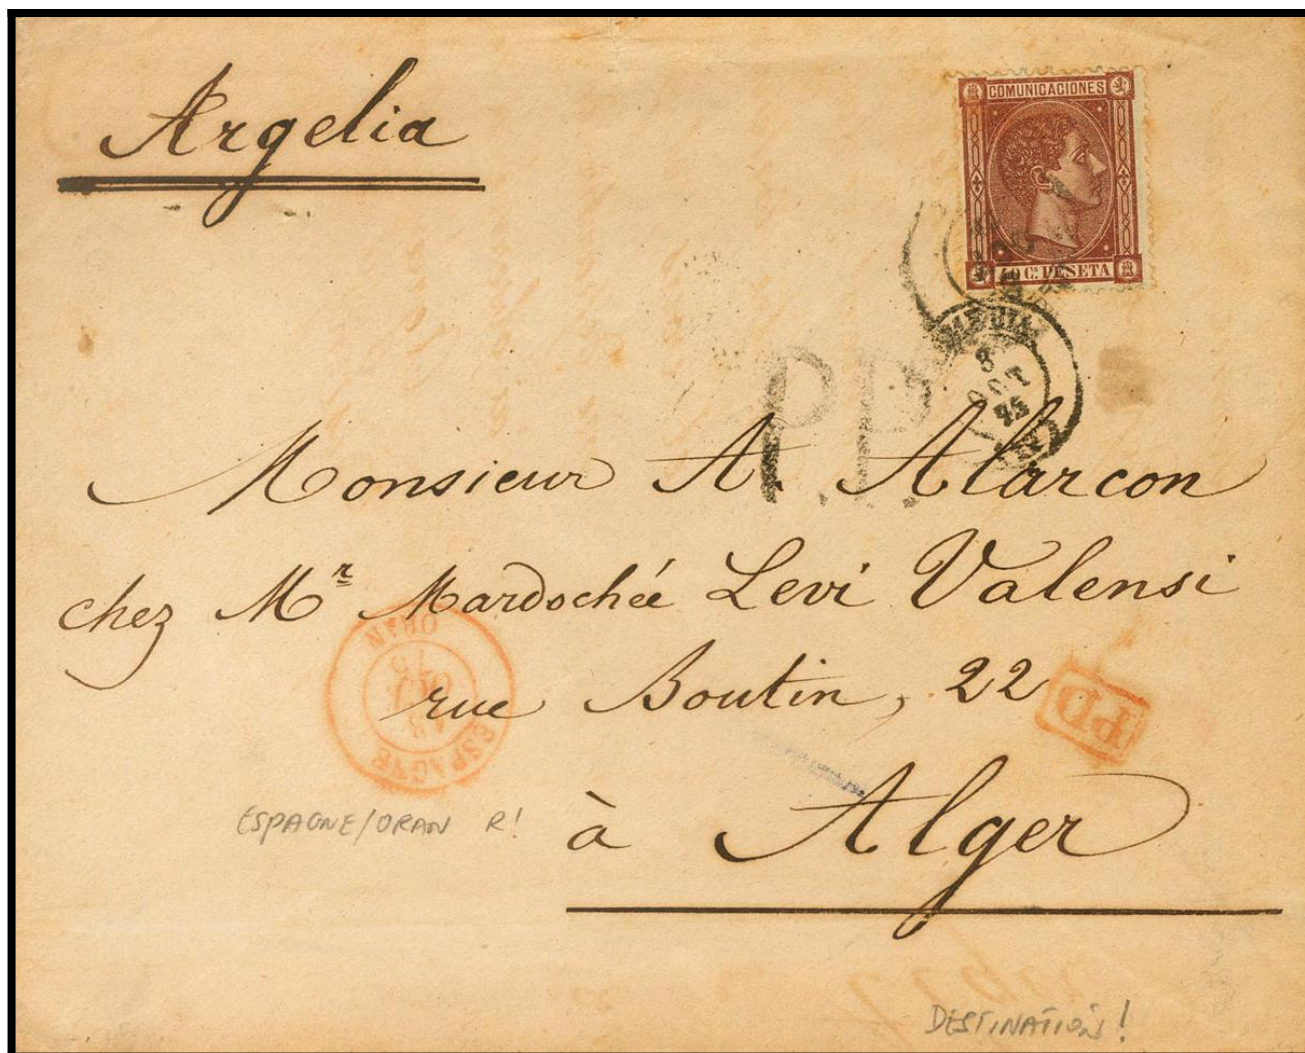 Argelia
COMUNICACIONES
40 Cs. PESETA
8
OCT
75
P.P.
Monsieur A. Alarcon
chez Mr Mardochée Levi Valensi
rue Boutin, 22
à Alger
ORAN
75
OCT
ESPAGNE
PD
ESPAGNE/ORAN R!
DESTINATION!